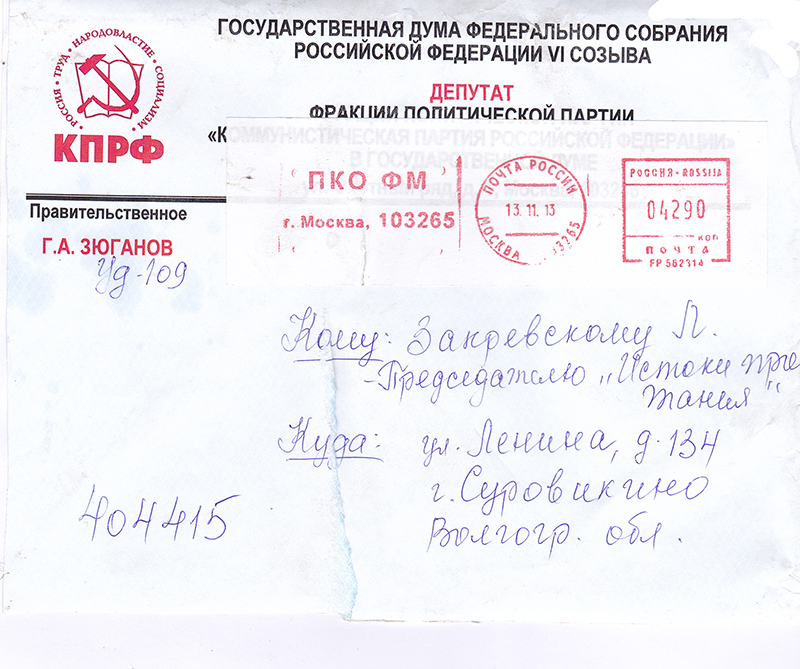 РОССИЯ • ТРУД • НАРОДОВЛАСТИЕ • СОЦИАЛИЗМ
КПРФ
ГОСУДАРСТВЕННАЯ ДУМА ФЕДЕРАЛЬНОГО СОБРАНИЯ
РОССИЙСКОЙ ФЕДЕРАЦИИ VI СОЗЫВА
ДЕПУТАТ
ФРАКЦИИ ПОЛИТИЧЕСКОЙ ПАРТИИ
«КОММУНИСТИЧЕСКАЯ ПАРТИЯ РОССИЙСКОЙ ФЕДЕРАЦИИ»
В ГОСУДАРСТВЕННОЙ ДУМЕ
103265
ПКО ФМ
г. Москва, 103265
ПОЧТА РОССИИ
13.11.13
МОСКВА 103265
РОССИЯ - ROSSIJA
04290
коп
почта
FP 562314
Правительственное
Г.А. ЗЮГАНОВ
Уд-109
Кому: Закревскому Л.
- Председателю „Истоки
тания"
Куда: ул. Ленина, д. 134
г. Суровикино
Волгогр. обл.
404415